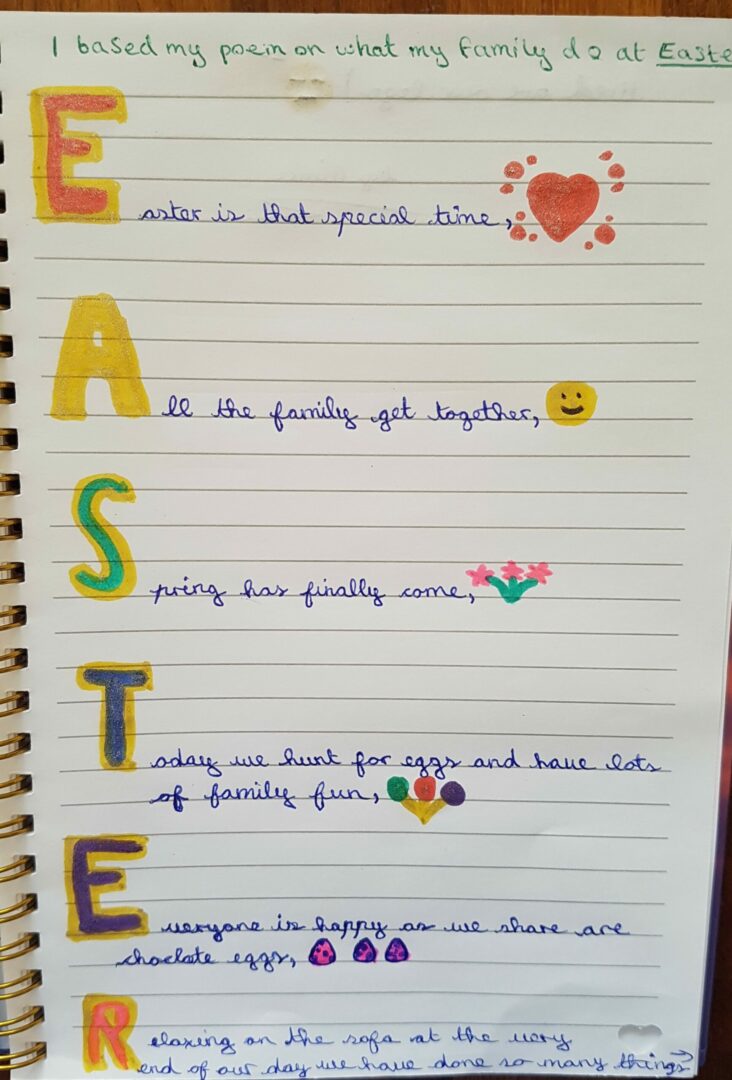 I based my poem on what my family do at Easte
Easter is that special time,
All the family get together,
Spring has finally come,
Today we hunt for eggs and have lots
of family fun,
Everyone is happy as we share are
choclate eggs,
Relaxing on the sofa at the very
end of our day we have done so many things→